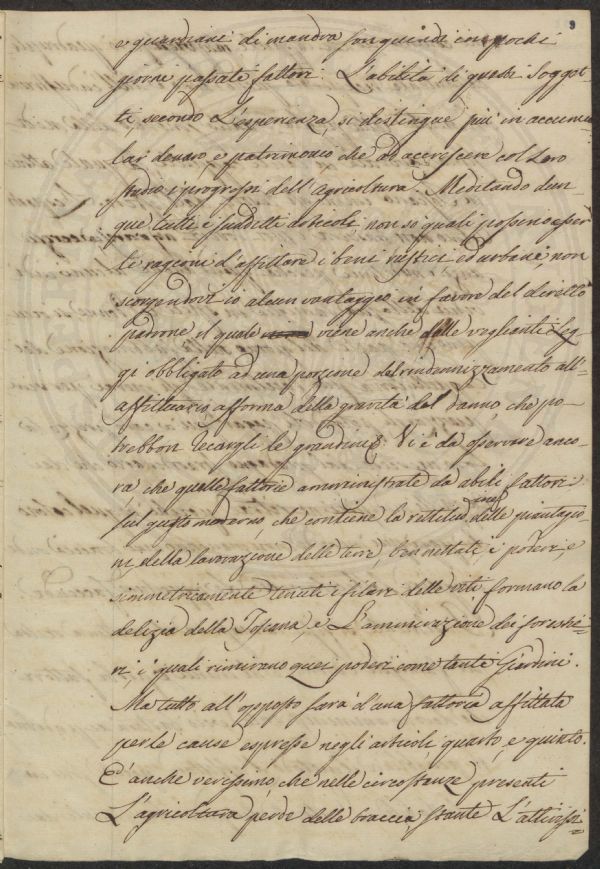 9
e guardiani di mandra son quindi in pochi
giorni passati fattori. L'abilità di questi Soggot-
ti, secondo L'esperienza, si distingue più in accumu
lar denaro, e patrimonio che ad accrescere col Loro
studio i progressi dell'Agricoltura. Meditando dun-
que tutti i suddetti articoli non so quali possino esser
le ragioni d'affittare i beni rustici ed urbani, non
scorgendovi io alcun vantaggio in favore del diretto
padrone il quale viene anche dalle veglianti Leg-
gi obbligato ad una porzione del rindennizzamento all'
affittuario, afforma della gravità del danno, che po-
trebbon recargli le grandini. Vi è da osservare anco-
ra che quelle fattorie amministrate da abili fattori
sul gusto moderno, che contiene la rettitudine delle piantagio-
ni, della lavorazione delle terre, ben nettati i poderi, e
simmetricamente tenuti i filari delle viti formano la
delizia della Toscana, e L'ammirazione dei forestie-
ri, i quali rimirano quei poderi come tanti Giardini.
Ma tutto all'opposto sarà d'una fattoria affittata
per le cause espresse negli articoli quarto, e quinto.
E' anche verissimo, che nelle circostanze presenti
L'agricoltura perde delle braccia, stante L'attivissi=